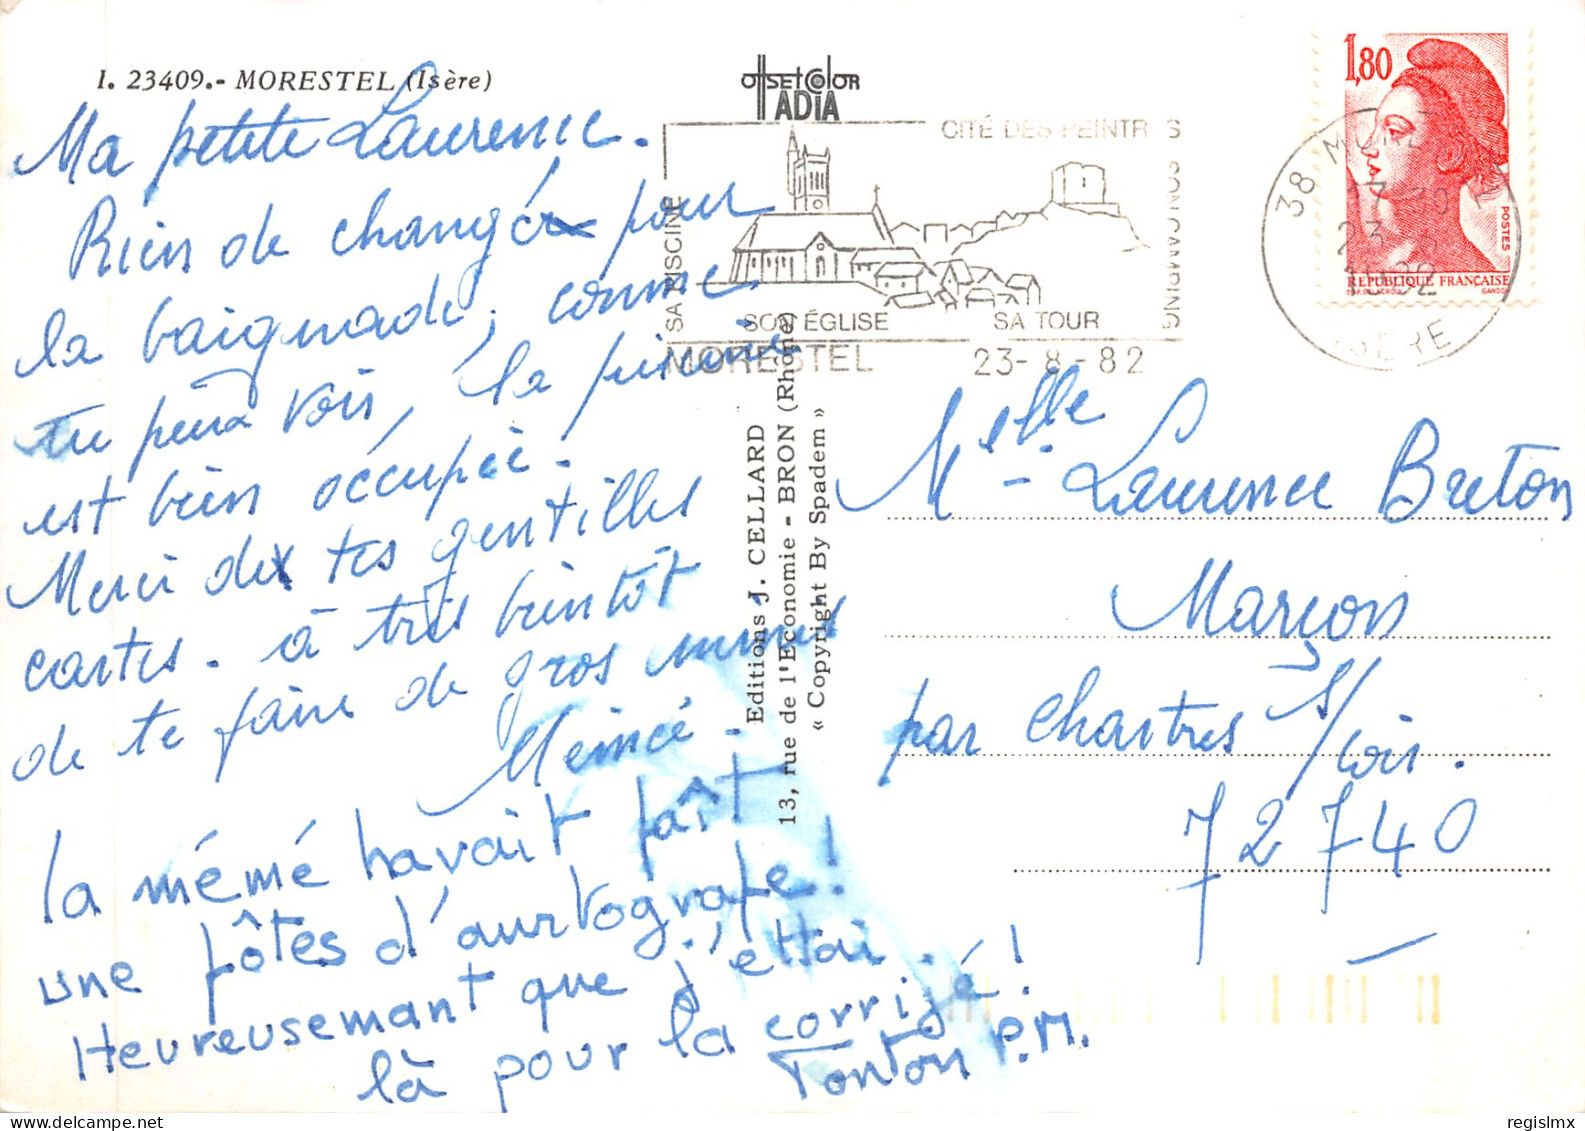 I. 23409.- MORESTEL (Isère)
offset color
ADIA
Ma petite Laurence.
Rien de changé pour
la baignade, comme
tu peux voir, la piscine
est bien occupée.
Merci de tes gentilles
cartes. à très bientôt
de te faire de gros mimis
Mémé.
la mémé havait faît
une fôtes d'aurtografe!
Heureusemant que j'ettai.
là pour la corrigé!
Tonton P.M.
Editions J. CELLARD
13, rue de l'Economie - BRON (Rhône)
« Copyright By Spadem »
CITÉ DES PEINTR S
SON CAMPING
SA PISCINE
SON ÉGLISE SA TOUR
MORESTEL 23-8-82
1,80
POSTES
RÉPUBLIQUE FRANÇAISE
GANDON
38
23
ISÈRE
Melle Laurence Breton
Marçon
par Chartres s/loir.
72740
regislmx